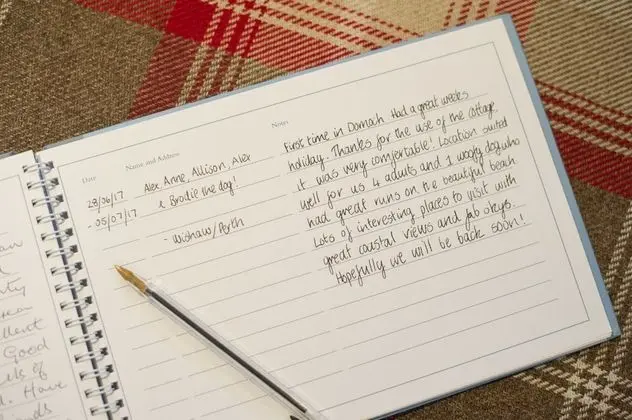 Date Name and Address Notes
28/06/17 Alex, Anne, Allison, Alex
- 05/07/17 & Brodie the dog!
- Wishaw/Perth
First time in Dornoch. Had a great weeks
holiday. Thanks for the use of the cottage
it was very comfortable! Location suited
well for us 4 adults and 1 woofy dog who
had great runs on the beautiful beach.
Lots of interesting places to visit with
great coastal views and
Hopefully we will be back soon!
Good
Have